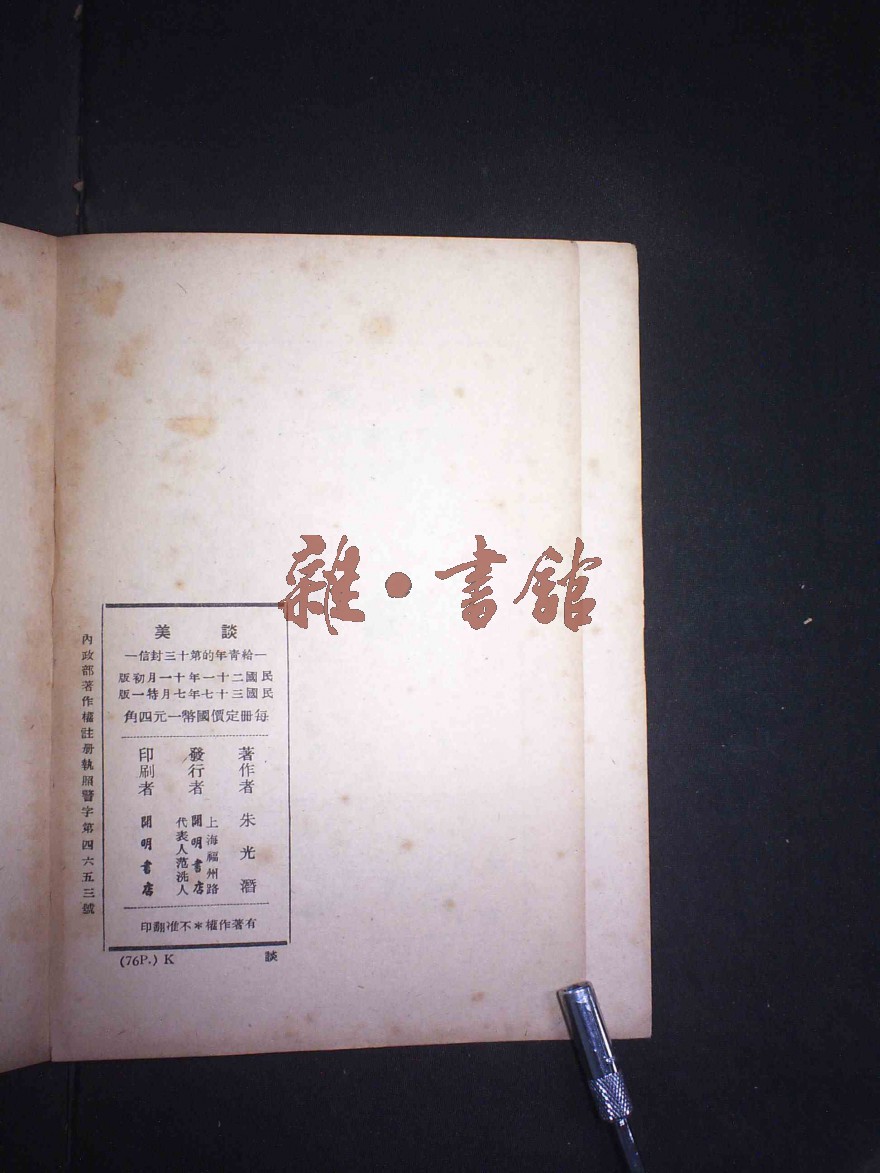 談美
—給青年的第十三封信—
民國二十一年十一月初版
民國三十七年七月特一版
每册定價國幣一元四角
著作者 朱光潛
發行者 上海福州路 開明書店 代表人范洗人
印刷者 開明書店
有著作權＊不准翻印
內政部著作權註册執照警字第四六五三號
(76P.) K
談
雜・書館